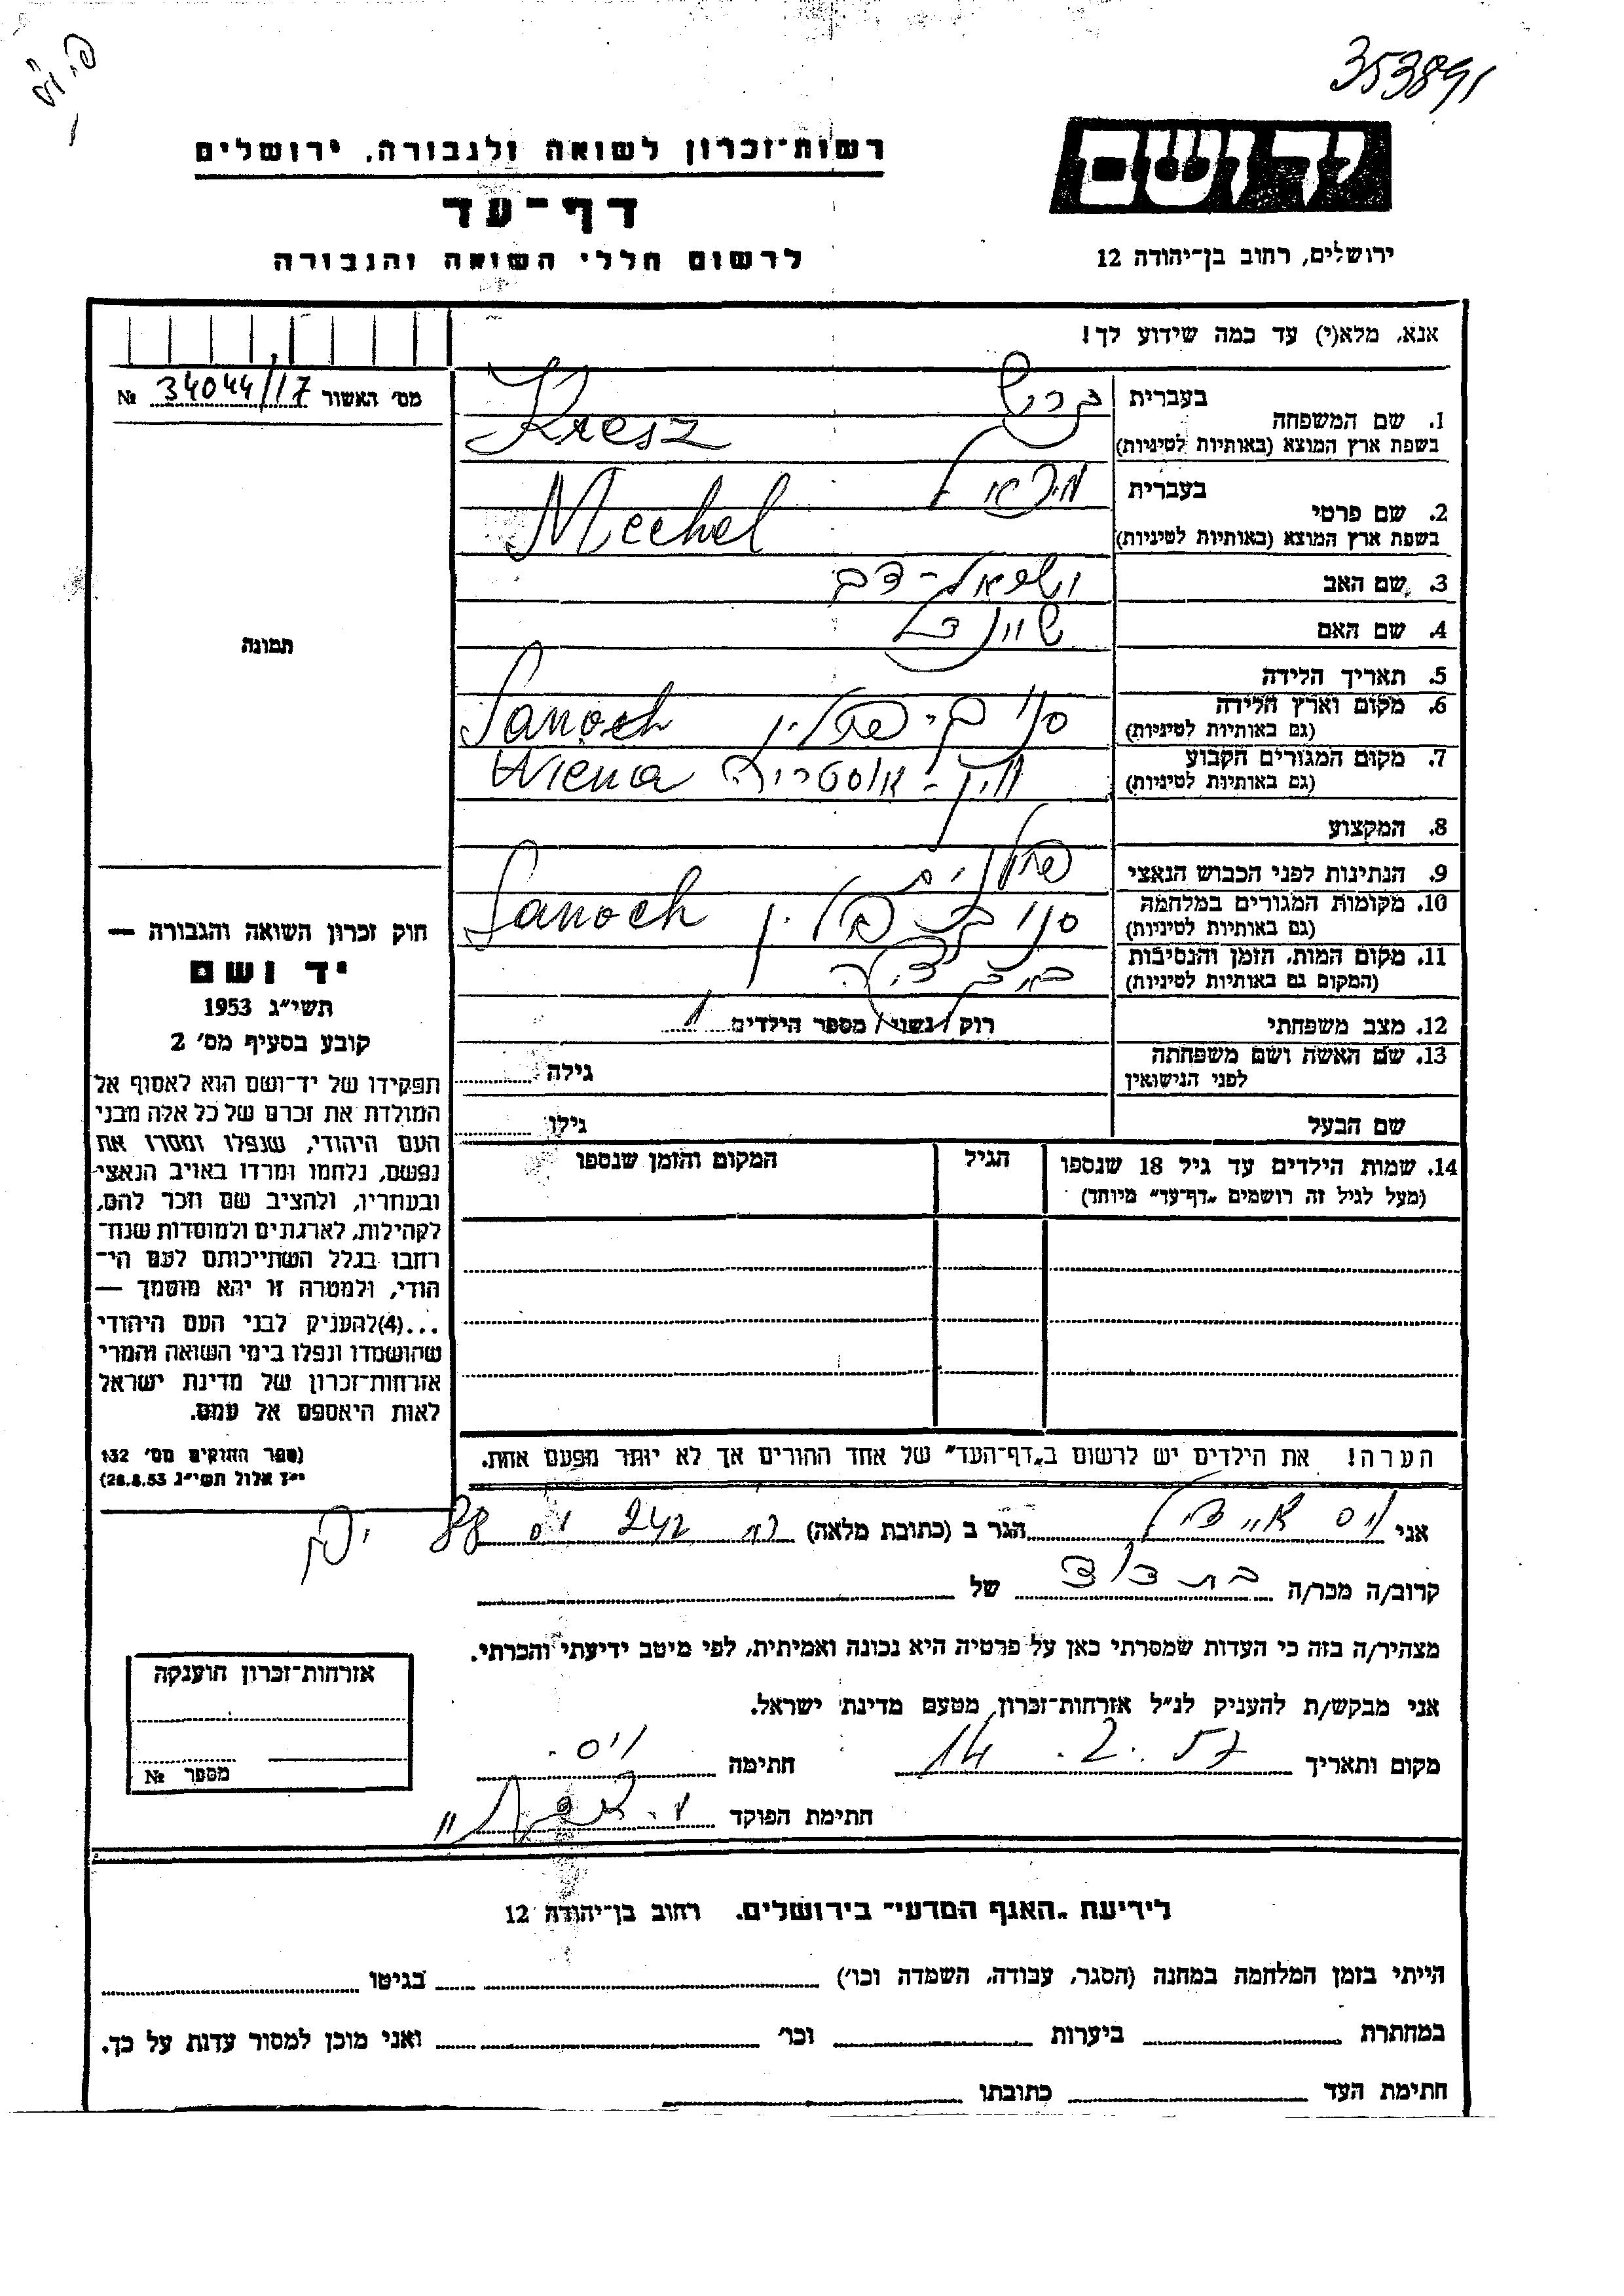 353891
יד ושם
רשות־זכרון לשואה ולגבורה, ירושלים
דף־עד
לרשום חללי השואה והגבורה
ירושלים, רחוב בן־יהודה 12
אנא, מלא(י) עד כמה שידוע לך!
מס' האשור 34044/17 №
1. שם המשפחה
בעברית קרש
בשפת ארץ המוצא (באותיות לטיניות) Kresz
2. שם פרטי
בעברית מיכאל
בשפת ארץ המוצא (באותיות לטיניות) Mechel
3. שם האב ישראל-דב
4. שם האם שיינדל
5. תאריך הלידה
6. מקום וארץ הלידה
(גם באותיות לטיניות) סנוק - פולין Sanoch
7. מקום המגורים הקבוע
(גם באותיות לטיניות) וין - אוסטריה Wiena
8. המקצוע
9. הנתינות לפני הכבוש הנאצי
10. מקומות המגורים במלחמה
(גם באותיות לטיניות) סנוק פולין Sanoch
11. מקום המות, הזמן והנסיבות
(המקום גם באותיות לטיניות)
12. מצב משפחתי רוק / נשוי / מספר הילדים 1
13. שם האשה ושם משפחתה
לפני הנישואין גילה
שם הבעל גילו
14. שמות הילדים עד גיל 18 שנספו
(מעל לגיל זה רושמים „דף־עד” מיוחד)
הגיל
המקום והזמן שנספו
הערה! את הילדים יש לרשום ב„דף־העד” של אחד ההורים אך לא יותר מפעם אחת.
תמונה
חוק זכרון השואה והגבורה —
יד ושם
תשי״ג 1953
קובע בסעיף מס' 2
תפקידו של יד־ושם הוא לאסוף אל
המולדת את זכרם של כל אלה מבני
העם היהודי, שנפלו ומסרו את
נפשם, נלחמו ומרדו באויב הנאצי
ובעוזריו, ולהציב שם וזכר להם,
לקהילות, לארגונים ולמוסדות שנח־
רבו בגלל השתייכותם לעם הי־
הודי, ולמטרה זו יהא מוסמך —
...(4)להעניק לבני העם היהודי
שהושמדו ונפלו בימי השואה והמרי
אזרחות־זכרון של מדינת ישראל
לאות היאספם אל עמם.
(ספר החוקים מס' 132
י״ז אלול תשי״ג 28.8.53)
אני וייס הגר ב (כתובת מלאה)
קרוב/ה מכר/ה בת דוד של
מצהיר/ה בזה כי העדות שמסרתי כאן על פרטיה היא נכונה ואמיתית, לפי מיטב ידיעתי והכרתי.
אני מבקש/ת להעניק לנ״ל אזרחות־זכרון מטעם מדינת ישראל.
מקום ותאריך 14.2.57 חתימה וייס.
חתימת הפוקד
אזרחות־זכרון הוענקה
מספר №
לידיעת „האגף המדעי” בירושלים. רחוב בן־יהודה 12
הייתי בזמן המלחמה במחנה (הסגר, עבודה, השמדה וכו') בגיטו
במחתרת ביערות וכו' ואני מוכן למסור עדות על כך.
חתימת העד כתובתו